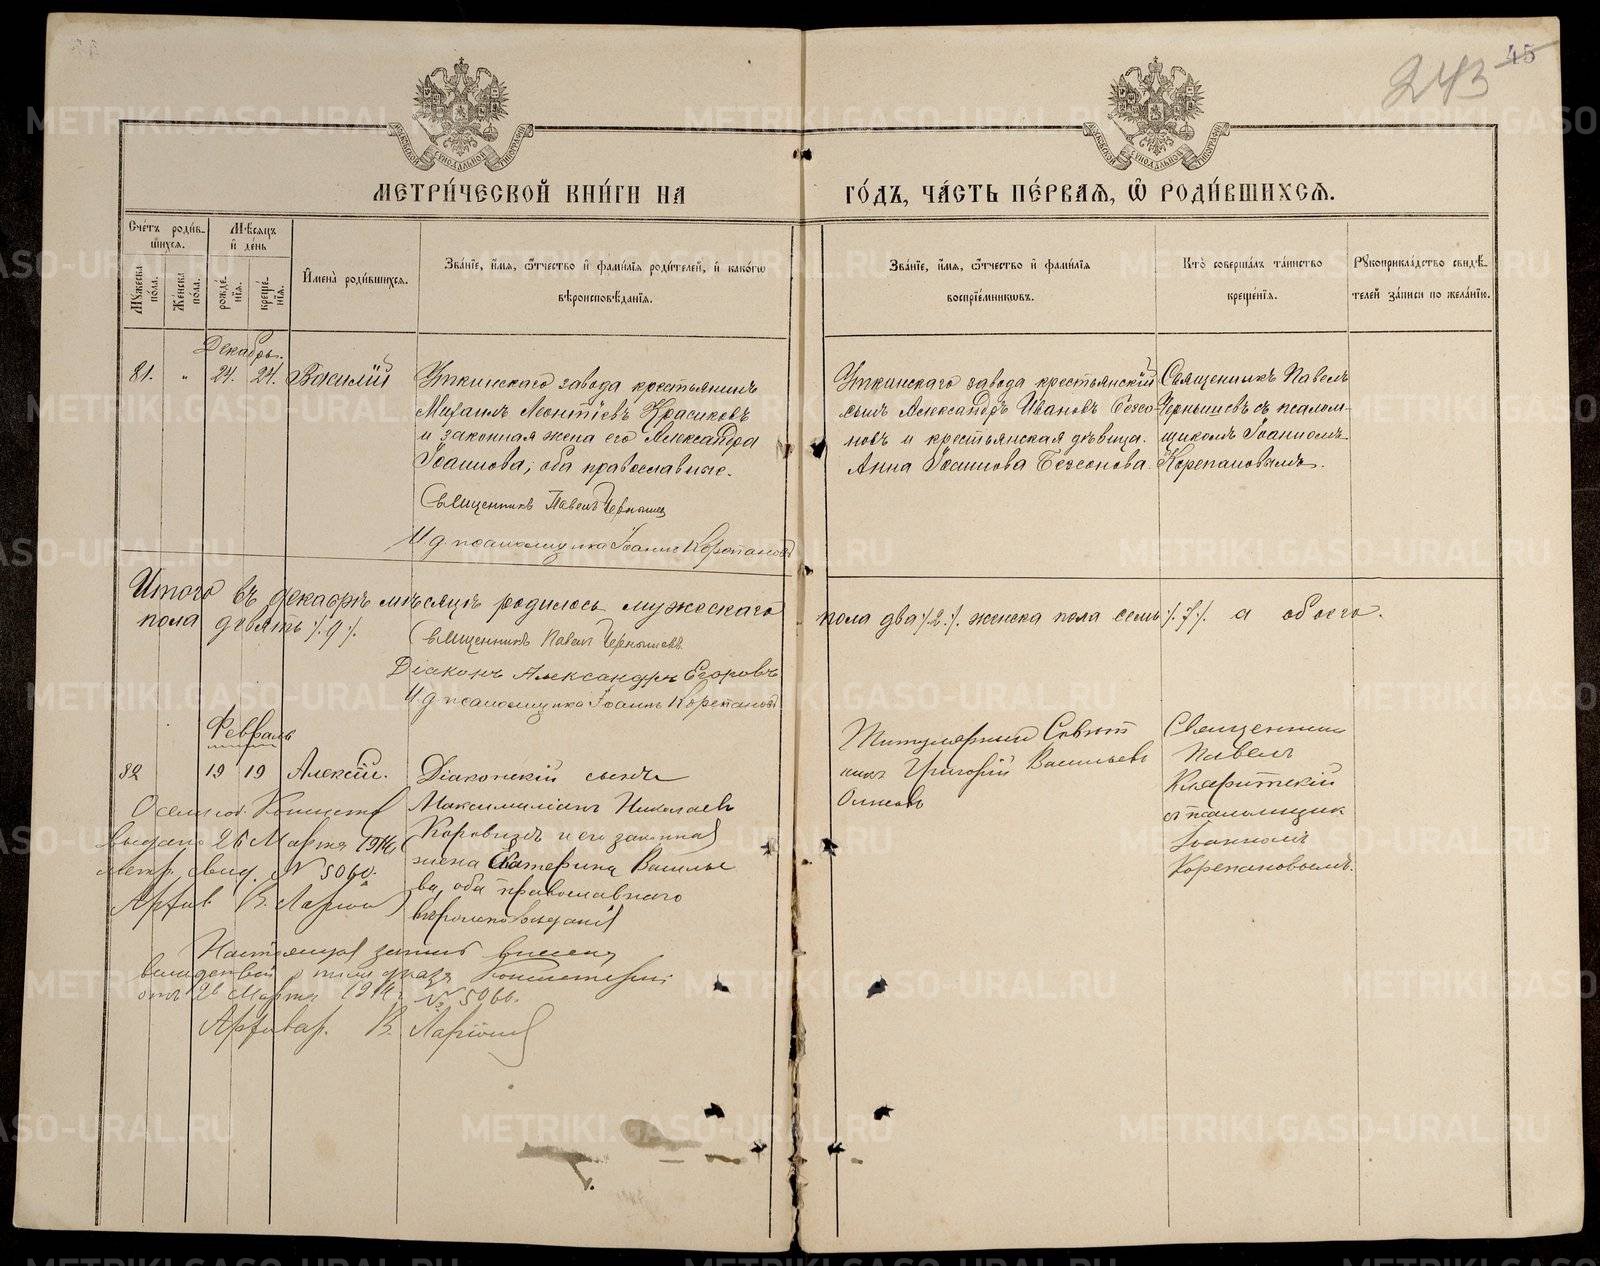 243 45
МЕТРИ́ЧЕСКОЙ КНИ́ГИ НА ГО́ДЪ, ЧА́СТЬ ПЕ́РВАЯ, Ѡ҆ РОДИ́ВШИХСЯ.
Сче́тъ роди́вшихся.
Мѣ́сяцъ и҆ де́нь
Му́жеска по́ла.
Же́нска по́ла.
рожде́нія.
креще́нія.
И҆мена̀ роди́вшихся.
Зва́ніе, и҆́мя, ѻ҆́тчество и҆ фами́лія роди́телей, и҆ како́гѡ
вѣроисповѣ́данія.
Зва́ніе, и҆́мя, ѻ҆́тчество и҆ фами́лія
воспріе́мниковъ.
Кто̀ соверша́лъ та́инство
креще́нія.
Рꙋкоприкла́дство свидѣ́телей за́писи по жела́нію.
Декабрь.
81. " 24. 24. Василій
Уткинскаго завода крестьянинъ
Михаилъ Леонтіевъ Красиковъ
и законная жена его Александра
Іоаннова, оба православные.
Священникъ Павелъ Чернышевъ
И.д. псаломщика Іоаннъ Корепановъ
Уткинскаго завода крестьянскій
сынъ Александръ Ивановъ Бечсо-
новъ и крестьянская дѣвица
Анна Іоаннова Бечсонова.
Священникъ Павелъ
Чернышевъ съ псалом-
щикомъ Іоанномъ
Корепановымъ.
Итого въ декабрѣ мѣсяцѣ родилось мужескаго пола два /.2./. женска пола семь /.7./. а обоего
пола девять /.9./.
Священникъ Павелъ Чернышевъ
Діаконъ Александръ Егоровъ
И.д. псаломщика Іоаннъ Корепановъ
Февраль
82 19 19 Алексій.
Діаконскій сынъ
Максимиліанъ Николаевъ
и его законная
жена Екатерина Василье
ва, оба православнаго
вѣроисповѣданія
Титулярный Совѣт
никъ Григорій Васильевъ
Священник
Павелъ
съ псаломщик
Іоанномъ
Корепановымъ.
выдано 26 Марта 1914
метр. свид. № 5060.
Архив В. Ларіон
Настоящая запись внесена
Консисторіи
отъ 26 Марта 1914 г. № 5060.
Архивар. В. Ларіонов